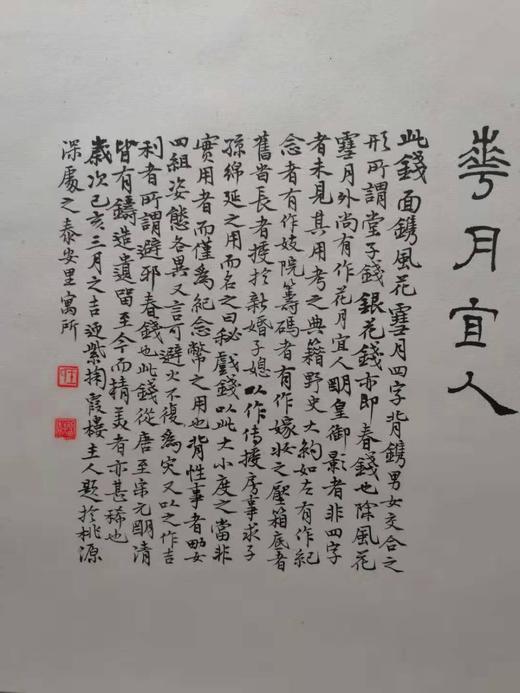 華月宜人
此錢面鐫風花雪月四字背鐫男女交合之
形所謂堂子錢銀花錢亦即春錢也除風花
雪月外尚有作花月宜人明皇御影者非四字
者未見其用考之典籍野史大約如左有作紀
念者有作妓院籌碼者有作嫁妝之壓箱底者
舊時長者授於新婚子媳以作傳授房事求子
孫綿延之用而名之曰秘戲錢以此大小度之當非
實用者而僅為紀念幣之用也背性事者男女
四組姿態各異又言可避火不復為灾又以之作吉
利者所謂避邪春錢也此錢從唐至宋元明清
皆有鑄造遺留至今而精美者亦甚稀也
歲次己亥三月之吉迎紫掬霞樓主人題於桃源
深處之泰安里寓所